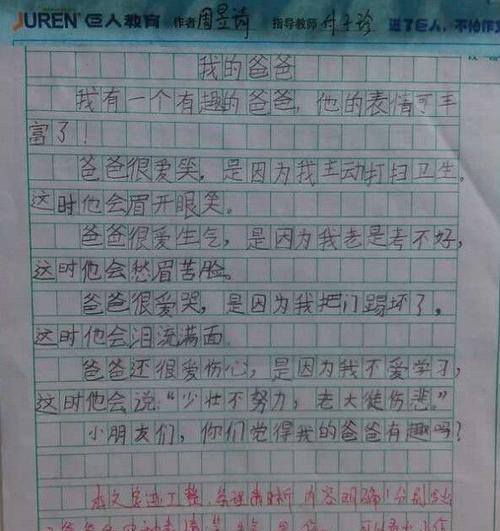 JUREN 巨人教育 作者 周昱诗 指导教师 付子珍 进了巨人,不怕作文
我的爸爸
我有一个有趣的爸爸,他的表情可丰
富了!
爸爸很爱笑,是因为我主动打扫卫生,
这时他会眉开眼笑。
爸爸很爱生气,是因为我老是考不好,
这时他会愁眉苦脸。
爸爸很爱哭,是因为我把门踢坏了,
这时他会泪流满面。
爸爸还很爱伤心,是因为我不爱学习,
这时他会说:“少壮不努力,老大徒伤悲。”
小朋友们,你们觉得我的爸爸有趣吗?
本文字迹工整,条理清晰 内容明确,分别写出